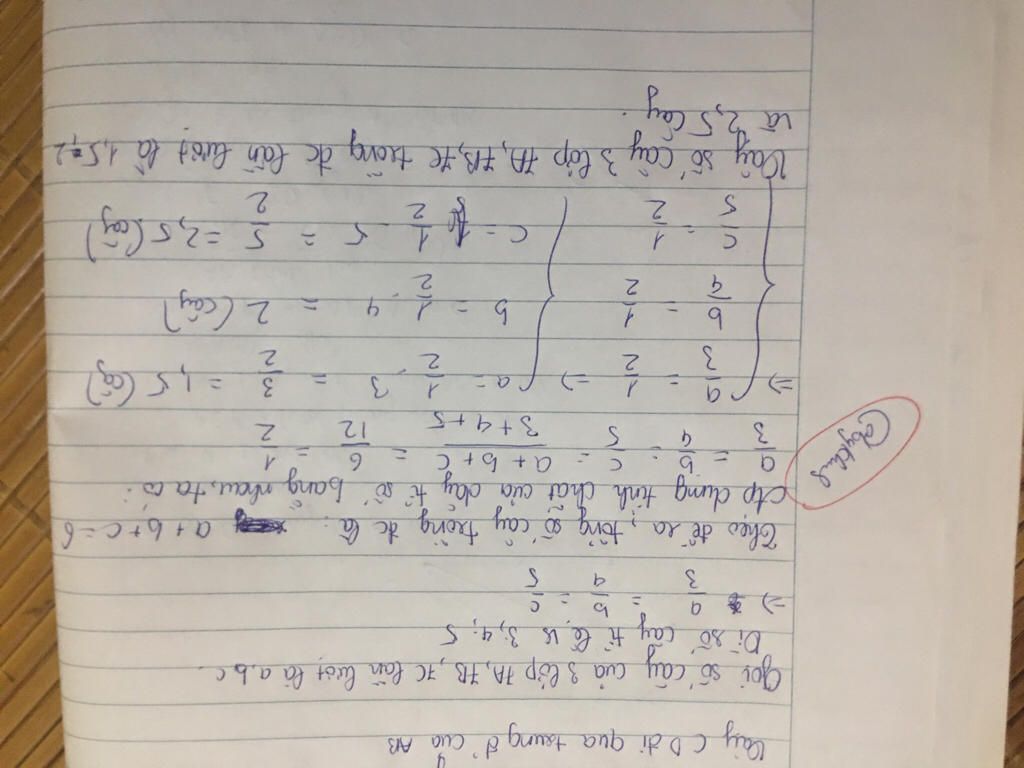 Vậy CD đi qua trung đ' của AB
Gọi số cây của 3 lớp 7A, 7B, 7C lần lượt là a, b, c.
Dì số cây tỉ lệ vs 3; 4; 5
=> a/3 = b/4 = c/5
Theo đề ra, tổng số cây trồng đc là: a + b + c = 6
Áp dụng tính chất của dãy tỉ số bằng nhau, ta có:
a/3 = b/4 = c/5 = (a + b + c)/(3 + 4 + 5) = 6/12 = 1/2
=> { a/3 = 1/2 => { a = 1/2 . 3 = 3/2 = 1,5 (cây)
b/4 = 1/2 b = 1/2 . 4 = 2 (cây)
c/5 = 1/2 c = 1/2 . 5 = 5/2 = 2,5 (cây)
Vậy số cây 3 lớp 7A, 7B, 7C trồng đc lần lượt là 1,5; 2
và 2,5 cây.